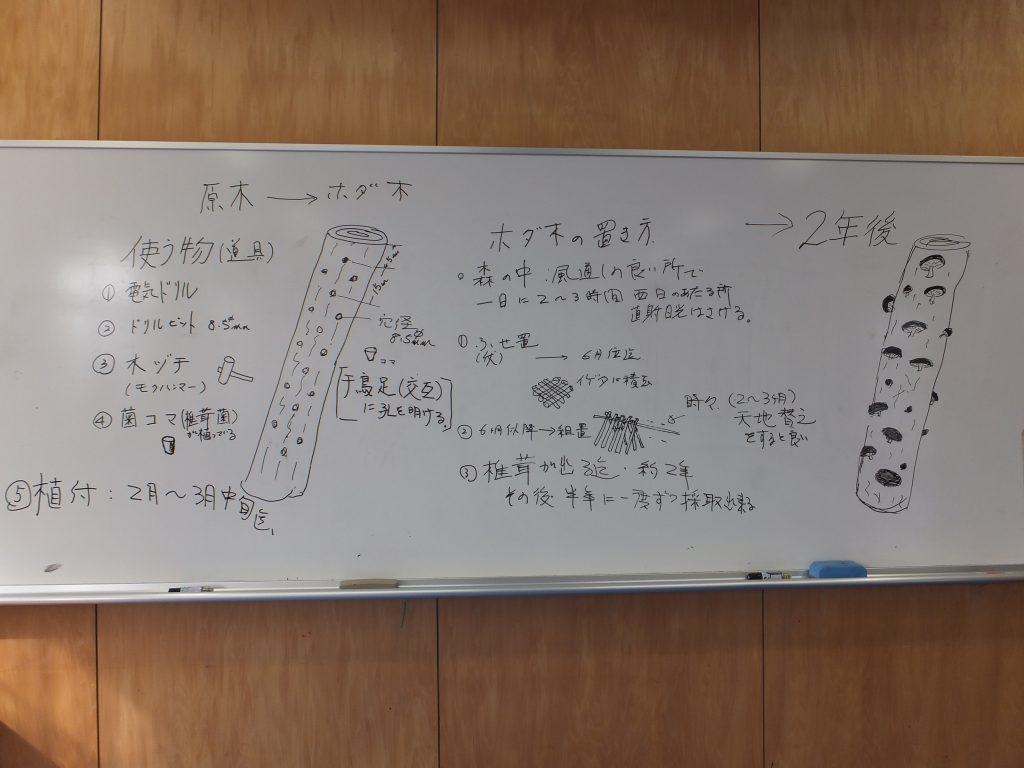 原木 → ホダ木
使う物(道具)
① 電気ドリル
② ドリルビット 8.5mm
③ 木ヅチ
(モクハンマー)
④ 菌コマ(椎茸菌)
が植っている
⑤ 植付：2月～3月中旬迄
穴径
8.5mm
コマ
千鳥足(交互)
に穴を明ける
ホダ木の置き方
。森の中：風通しの良い所で
一日に2～3時間 西日のあたる所
直射日光はさける。
① ふせ置 → 6月位迄
(伏)
イゲタに積む
② 6月以降→組置
時々(2～3ヶ月)
天地替え
をすると良い
③ 椎茸が出る迄・約2年
その後半年に一度ずつ採取出来る
→ 2年後